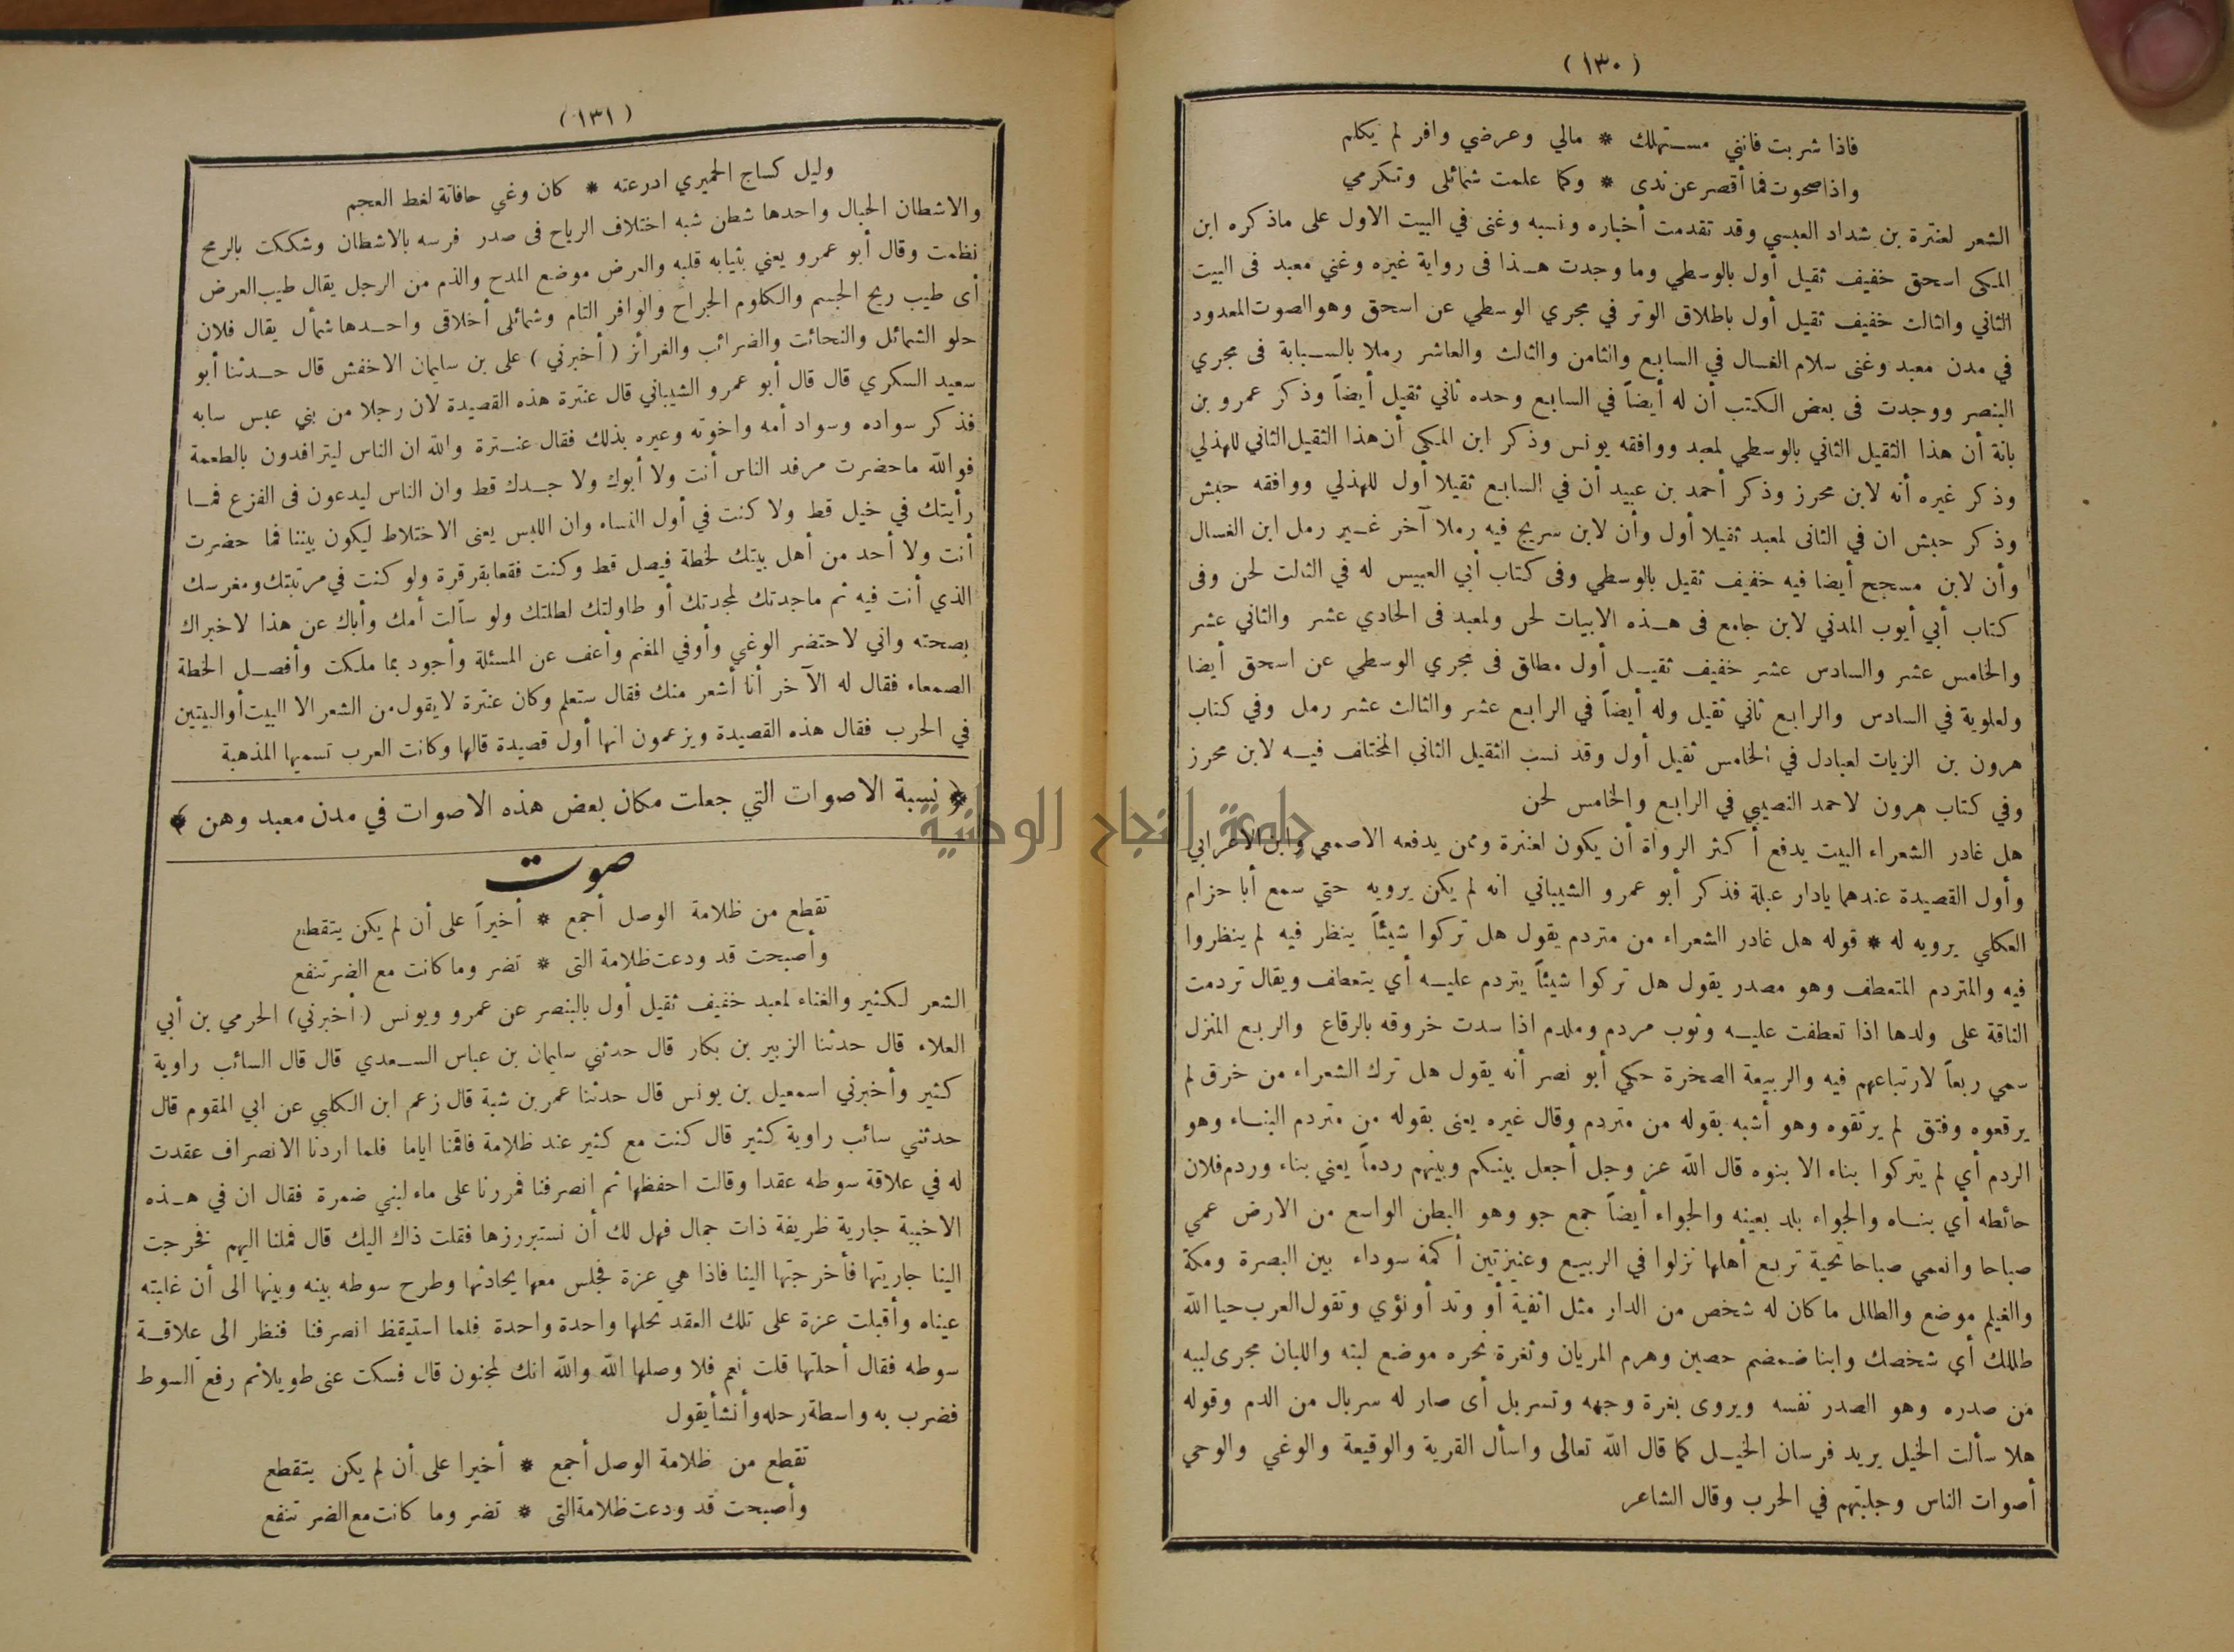 (١٣٠)
فاذا شربت فانني مستهلك * مالي وعرضي وافر لم يكلم
واذا صحوت فما أقصر عن ندى * وكما علمت شمائلى وتكرمي
الشعر لعنترة بن شداد العبسي وقد تقدمت أخباره ونسبه وغنى في البيت الاول على ماذكره ابن
المكى اسحق خفيف ثقيل أول بالوسطي وما وجدت هذا فى رواية غيره وغني معبد فى البيت
الثاني والثالث خفيف ثقيل أول باطلاق الوتر في مجري الوسطي عن اسحق وهو الصوت المعدود
في مدن معبد وغنى سلام الغسال في السابع والثامن والثالث والعاشر رملا بالسبابة فى مجري
البنصر ووجدت فى بعض الكتب أن له أيضاً في السابع وحده ثاني ثقيل أيضاً وذكر عمرو بن
بانة أن هذا الثقيل الثاني بالوسطي لمعبد ووافقه يونس وذكر ابن المكى أن هذا الثقيل الثاني للهذلي
وذكر غيره أنه لابن محرز وذكر أحمد بن عبيد أن في السابع ثقيلا أول للهذلي ووافقه حبش
وذكر حبش ان في الثانى لمعبد ثقيلا أول وأن لابن سريج فيه رملا آخر غير رمل ابن الغسال
وأن لابن مسجح أيضا فيه خفيف ثقيل بالوسطي وفى كتاب أبي العبيس له في الثالث لحن وفى
كتاب أبي أيوب المدني لابن جامع فى هذه الابيات لحن ولمعبد فى الحادي عشر والثاني عشر
والخامس عشر والسادس عشر خفيف ثقيل أول مطلق فى مجري الوسطي عن اسحق أيضا
ولعلوية في السادس والرابع ثاني ثقيل وله أيضاً في الرابع عشر والثالث عشر رمل وفي كتاب
هرون بن الزيات لعبادل في الخامس ثقيل أول وقد نسب الثقيل الثاني المختلف فيه لابن محرز
وفي كتاب هرون لاحمد النصيبي في الرابع والخامس لحن
هل غادر الشعراء البيت يدفع أكثر الرواة أن يكون لعنترة وممن يدفعه الاصمعي وابن الاعرابي
وأول القصيدة عندهما يادار عبلة فذكر أبو عمرو الشيباني انه لم يكن يرويه حتي سمع أبا حزام
العكلي يرويه له * قوله هل غادر الشعراء من متردم يقول هل تركوا شيئاً ينظر فيه لم ينظروا
فيه والمتردم المتعطف وهو مصدر يقول هل تركوا شيئاً يتردم عليه أي يتعطف ويقال تردمت
الناقة على ولدها اذا تعطفت عليه وثوب مردم وملدم اذا سدت خروقه بالرقاع والربع المنزل
سمي ربعاً لارتباعهم فيه والربيعة الصخرة حكي أبو نصر أنه يقول هل ترك الشعراء من خرق لم
يرقعوه وفتق لم يرتقوه وهو أشبه بقوله من متردم وقال غيره يعنى بقوله من متردم البناء وهو
الردم أي لم يتركوا بناء الا بنوه قال الله عز وجل أجعل بينكم وبينهم ردماً يعني بناء وردم فلان
حائطه أي بناه والجواء بلد بعينه والجواء أيضاً جمع جو وهو البطن الواسع من الارض عمي
صباحا وانعمي صباحا تحية تربع أهلها نزلوا في الربيع وعنيزتين أكمة سوداء بين البصرة ومكة
والغيلم موضع والطلل ما كان له شخص من الدار مثل اثفية أو وتد أو نؤي وتقول العرب حيا الله
طللك أي شخصك وابنا ضمضم حصين وهرم المريان وثغرة نحره موضع لبته واللبان مجرى لببه
من صدره وهو الصدر نفسه ويروى بغرة وجهه وتسربل أى صار له سربال من الدم وقوله
هلا سألت الخيل يريد فرسان الخيل كما قال الله تعالى واسأل القرية والوقيعة والوغي والوحي
أصوات الناس وجلبتهم في الحرب وقال الشاعر
(١٣١)
وليل كساج الحميري ادرعته * كان وغي حافاتة لغط العجم
والاشطان الحبال واحدها شطن شبه اختلاف الرياح فى صدر فرسه بالاشطان وشككت بالرمح
نظمت وقال أبو عمرو يعني بثيابه قلبه والعرض موضع المدح والذم من الرجل يقال طيب العرض
أى طيب ريح الجسم والكلوم الجراح والوافر التام وشمائلى أخلاقى واحدها شمأل يقال فلان
حلو الشمائل والنحائت والضرائب والغرائز (أخبرني) على بن سليمان الاخفش قال حدثنا أبو
سعيد السكري قال قال أبو عمرو الشيباني قال عنترة هذه القصيدة لان رجلا من بني عبس سابه
فذكر سواده وسواد أمه واخوته وعيره بذلك فقال عنترة والله ان الناس ليترافدون بالطعمة
فوالله ماحضرت مرفد الناس أنت ولا أبوك ولا جدك قط وان الناس ليدعون فى الفزع فما
رأيتك في خيل قط ولا كنت في أول النساء وان اللبس يعنى الاختلاط ليكون بيننا فما حضرت
أنت ولا أحد من أهل بيتك لخطة فيصل قط وكنت فقعا بقرقرة ولو كنت في مرتبتك ومغرسك
الذي أنت فيه ثم ماجدتك لمجدتك أو طاولتك لطلتك ولو سألت أمك وأباك عن هذا لاخبراك
بصحته واني لاحتضر الوغي وأوفي المغنم وأعف عن المسئلة وأجود بما ملكت وأفصل الخطة
الصمعاء فقال له الآخر أنا أشعر منك فقال ستعلم وكان عنترة لايقول من الشعر الا البيت أو البيتين
في الحرب فقال هذه القصيدة ويزعمون انها أول قصيدة قالها وكانت العرب تسميها المذهبة
﴿ نسبة الاصوات التي جعلت مكان بعض هذه الاصوات في مدن معبد وهن ﴾
صوت
تقطع من ظلامة الوصل أجمع * أخيراً على أن لم يكن يتقطع
وأصبحت قد ودعت ظلامة التى * تضر وما كانت مع الضر تنفع
الشعر لكثير والغناء لمعبد خفيف ثقيل أول بالبنصر عن عمرو ويونس (أخبرني) الحرمي بن أبي
العلاء قال حدثنا الزبير بن بكار قال حدثني سليمان بن عباس السعدي قال قال السائب راوية
كثير وأخبرني اسمعيل بن يونس قال حدثنا عمر بن شبة قال زعم ابن الكلبي عن ابي المقوم قال
حدثني سائب راوية كثير قال كنت مع كثير عند ظلامة فاقمنا اياما فلما اردنا الانصراف عقدت
له في علاقة سوطه عقدا وقالت احفظها ثم انصرفنا فمررنا على ماء لبني ضمرة فقال ان في هذه
الاخبية جارية ظريفة ذات جمال فهل لك أن نستبرزها فقلت ذاك اليك قال فملنا اليهم فخرجت
الينا جاريتها فأخرجتها الينا فاذا هي عزة فجلس معها يحادثها وطرح سوطه بينه وبينها الى أن غلبته
عيناه وأقبلت عزة على تلك العقد تحلها واحدة واحدة فلما استيقظ انصرفنا فنظر الى علاقة
سوطه فقال أحلتها قلت نعم فلا وصلها الله والله انك لمجنون قال فسكت عنى طويلا ثم رفع السوط
فضرب به واسطة رحله وأنشأ يقول
تقطع من ظلامة الوصل أجمع * أخيرا على أن لم يكن يتقطع
وأصبحت قد ودعت ظلامة التى * تضر وما كانت مع الضر تنفع
جامعة النجاح الوطنية